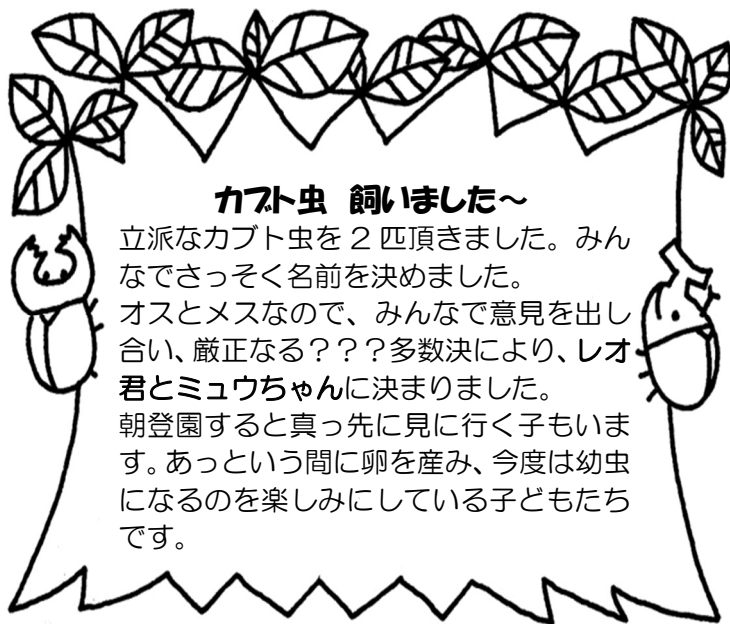 カブト虫 飼いました～
立派なカブト虫を2匹頂きました。みん
なでさっそく名前を決めました。
オスとメスなので、みんなで意見を出し
合い、厳正なる？？？多数決により、レオ
君とミュウちゃんに決まりました。
朝登園すると真っ先に見に行く子もいま
す。あっという間に卵を産み、今度は幼虫
になるのを楽しみにしている子どもたち
です。